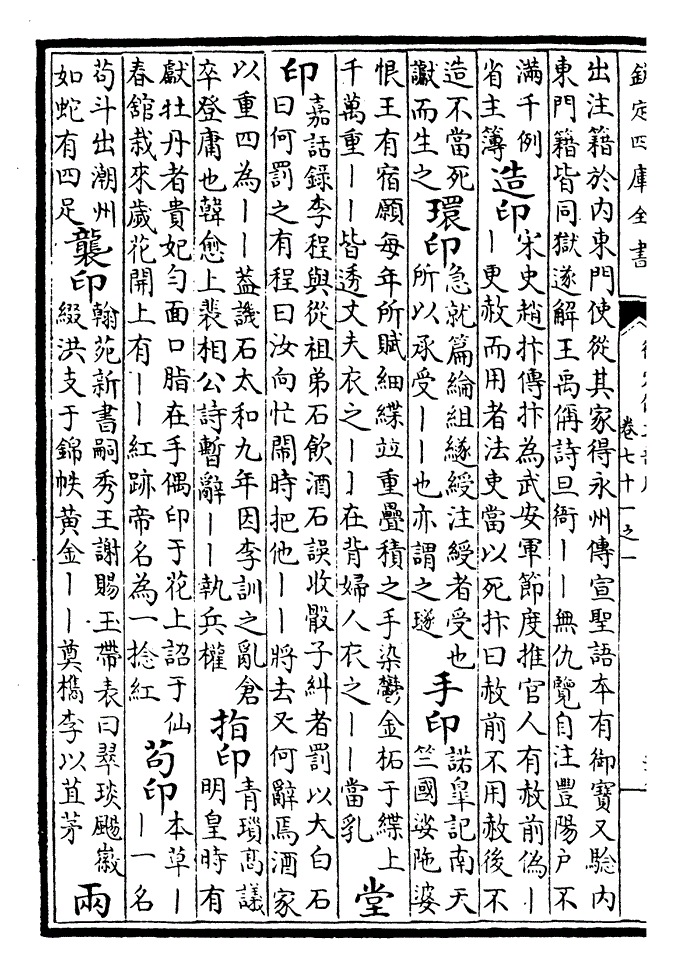 欽定四庫全書
卷七十一之一
出注籍於内東門使從其家得永州傳宣聖語本有御寳又驗内
東門籍皆同獄遂解王禹偁詩旦衙丨丨無仇覽自注豐陽户不
滿千例
省主簿
造印
宋史趙抃傳抃為武安軍節度推官人有赦前偽丨
丨更赦而用者法吏當以死抃曰赦前不用赦後不
造不當死
讞而生之
環印
急就篇綸組縌綬注綬者受也
所以承受丨丨也亦謂之璲
手印
諾臯記南天
竺國娑陁婆
恨王有宿願每年所賦細緤並重疊積之手染鬱金柘于緤上
千萬重丨丨皆透丈夫衣之丨丨在背婦人衣之丨丨當乳
堂
印
嘉話錄李程與從祖弟石飲酒石誤收骰子糾者罰以大白石
曰何罰之有程曰汝向忙鬧時把他丨丨將去又何辭焉酒家
以重四為丨丨葢譏石太和九年因李訓之亂倉
卒登庸也韓愈上裴相公詩暫辭丨丨執兵權
指印
青瑣髙議
明皇時有
獻牡丹者貴妃匀面口脂在手偶印于花上詔于仙
春舘栽來歲花開上有丨丨紅跡帝名為一捻紅
茍印
本草丨
丨一名
茍斗出潮州
如蛇有四足
襲印
翰苑新書嗣秀王謝賜玉帶表曰翠琰颺徽
綴洪支于錦帙黄金丨丨奠檇李以苴茅
兩